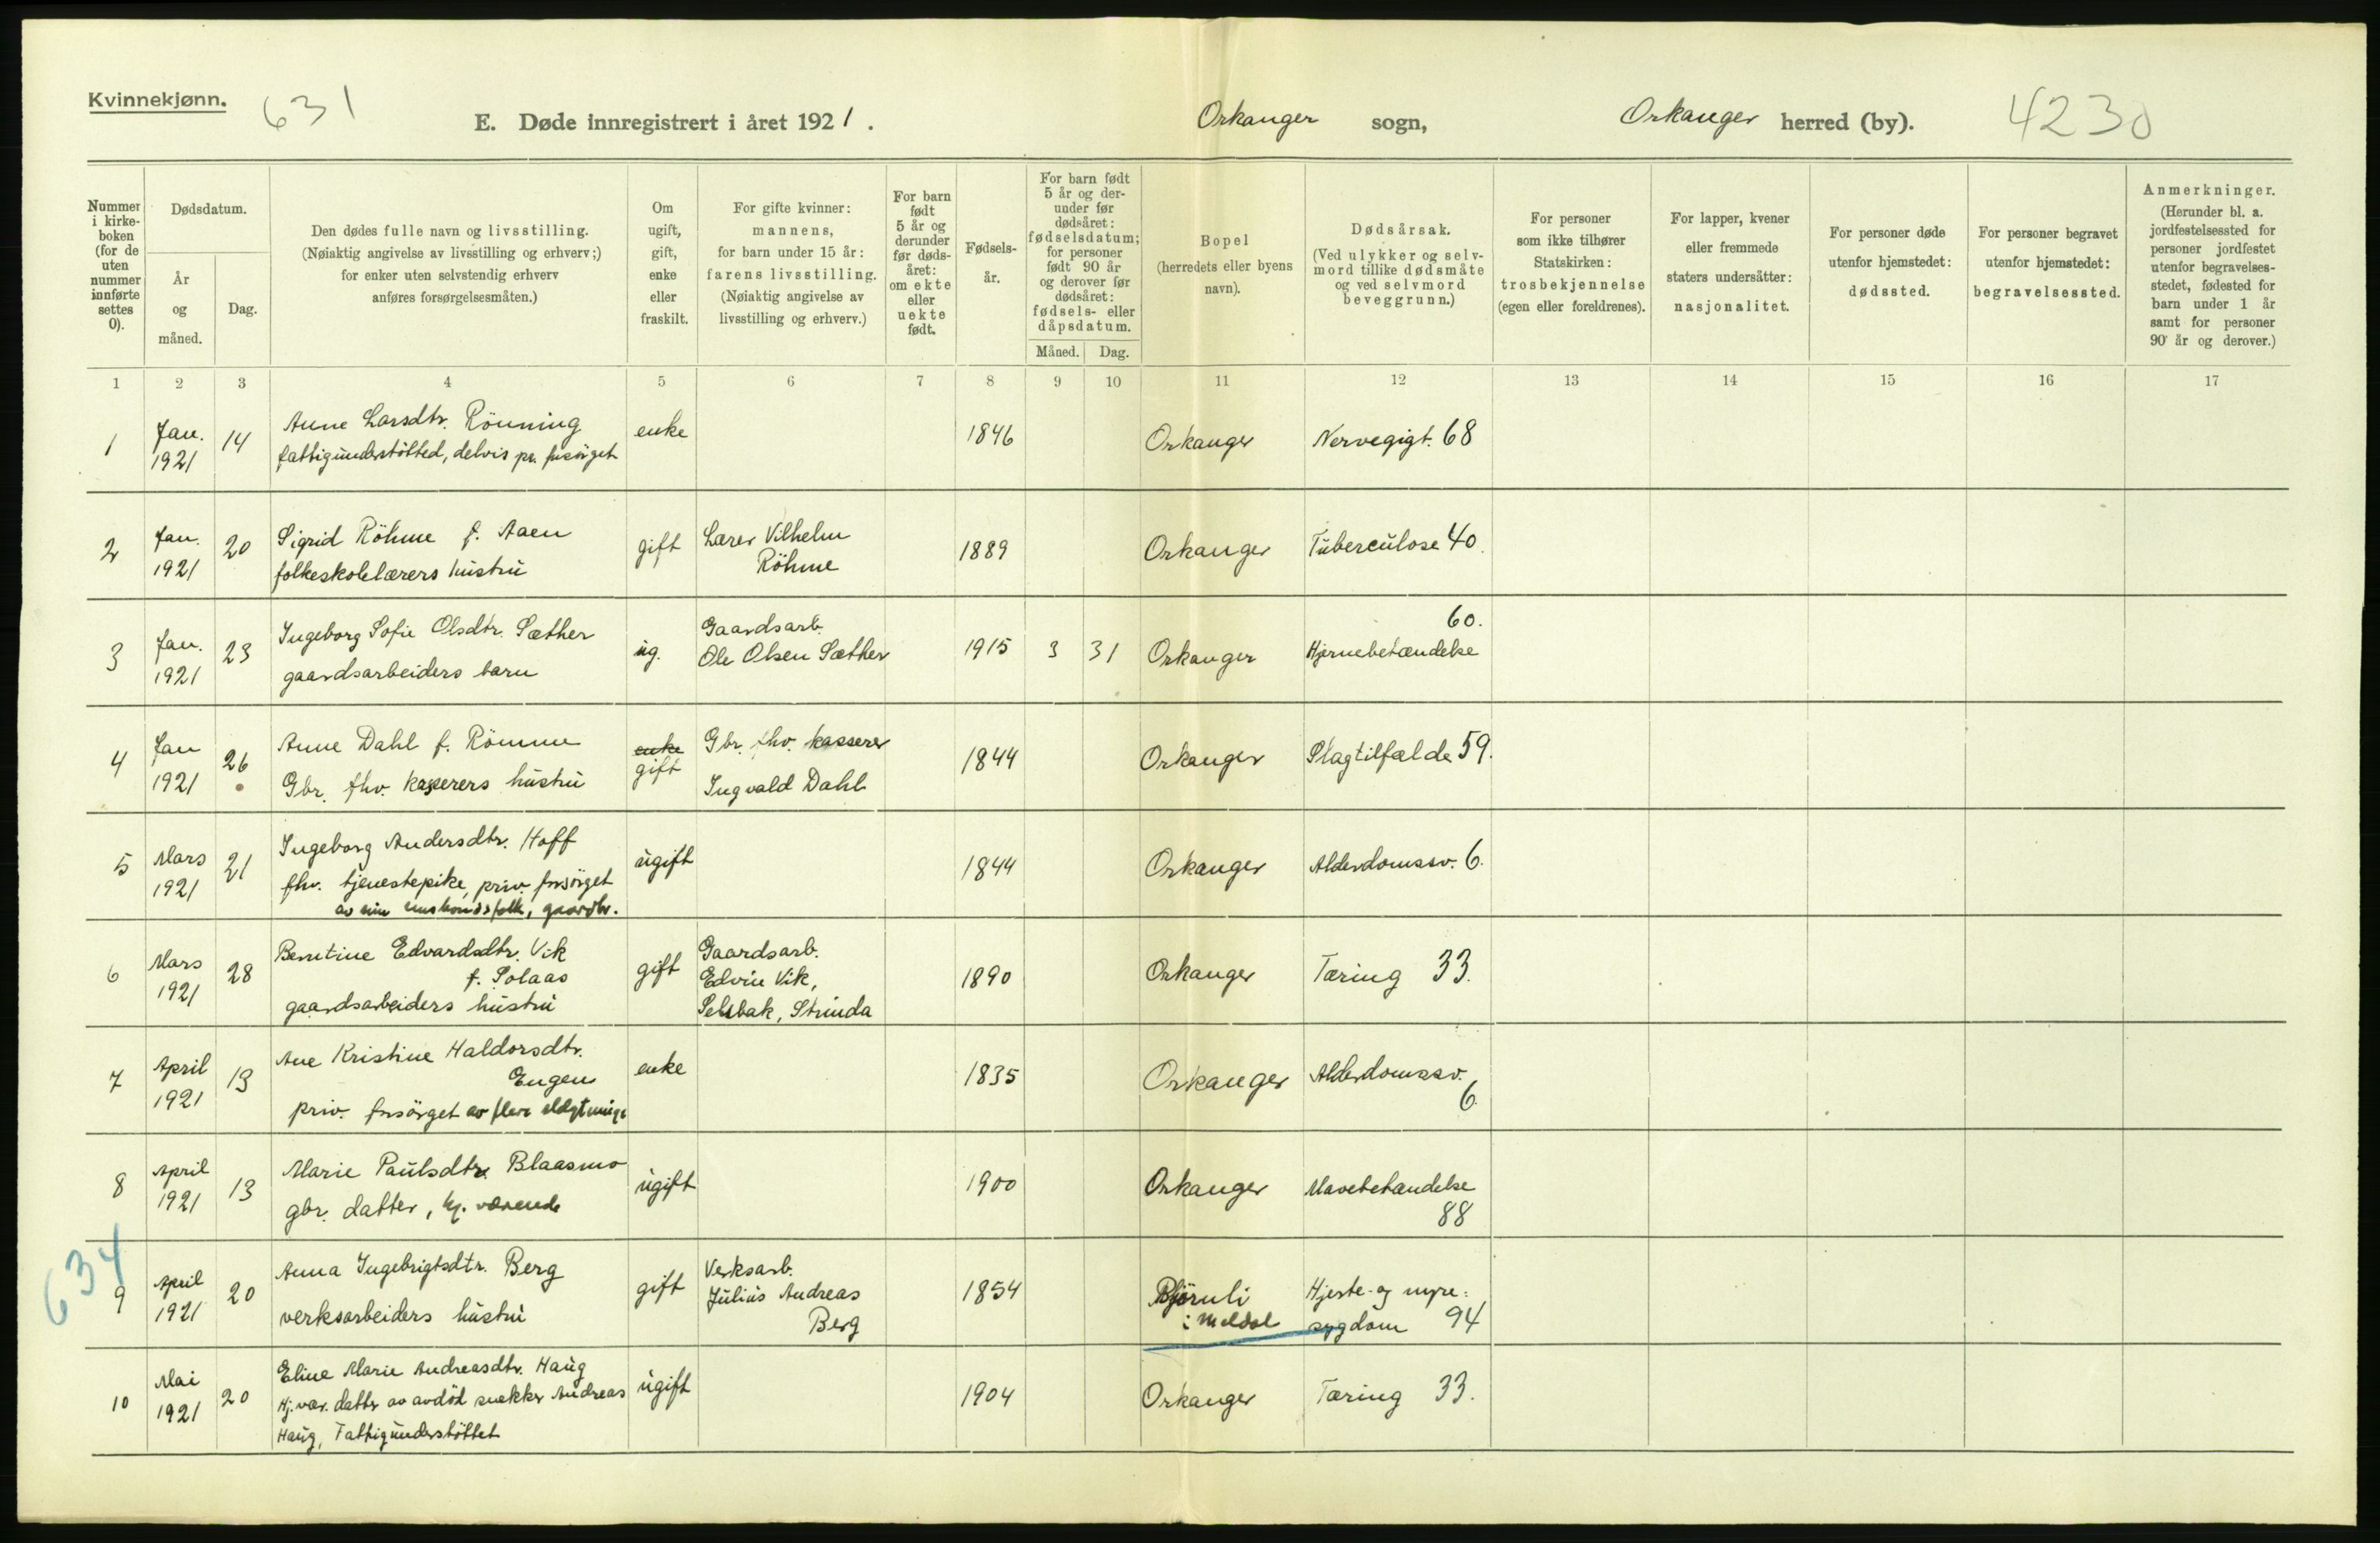 Kvinnekjønn.
631
E. Døde innregistrert i året 1921.
Orkanger sogn,
Orkanger herred (by).
4230
Nummer i kirke-boken (for de uten nummer innførte settes 0).
Dødsdatum.
År og måned.
Dag.
Den dødes fulle navn og livsstilling.
(Nøiaktig angivelse av livsstilling og erhverv;)
for enker uten selvstendig erhverv
anføres forsørgelsesmåten.)
Om ugift, gift, enke eller fraskilt.
For gifte kvinner:
mannens,
for barn under 15 år:
farens livsstilling.
(Nøiaktig angivelse av
livsstilling og erhverv.)
For barn født 5 år og derunder før døds-året: om ekte eller uekte født.
Fødsels-år.
For barn født 5 år og der-under før dødsåret: fødselsdatum; for personer født 90 år og derover før dødsåret: fødsels- eller dåpsdatum.
Måned.
Dag.
Bopel
(herredets eller byens
navn).
Dødsårsak.
(Ved ulykker og selv-
mord tillike dødsmåte
og ved selvmord
beveggrunn.)
For personer
som ikke tilhører
Statskirken:
trosbekjennelse
(egen eller foreldrenes).
For lapper, kvener
eller fremmede
staters undersåtter:
nasjonalitet.
For personer døde
utenfor hjemstedet:
dødssted.
For personer begravet
utenfor hjemstedet:
begravelsessted.
Anmerkninger.
(Herunder bl. a.
jordfestelsessted for
personer jordfestet
utenfor begravelses-
stedet, fødested for
barn under 1 år
samt for personer
90 år og derover.)
1 2 3 4 5 6 7 8 9 10 11 12 13 14 15 16 17
1 Jan. 1921 14 Anne Larsdtr. Rönning enke 1846 Orkanger Nervegigt. 68
fattigunderstötted, delvis pr. forsörget
2 Jan. 1921 20 Sigrid Röhme f. Aaen gift Lærer Vilhelm Röhme 1889 Orkanger Tuberculose 40.
folkeskolelærers hustru
3 Jan. 1921 23 Ingeborg Sofie Olsdtr. Sæther ug. Gaardsarb. Ole Olsen Sæther 1915 3 31 Orkanger Hjernebetændelse 60.
gaardsarbeiders barn
4 Jan 1921 26 Anne Dahl f. Römme enke gift Gbr. fhv. kasserer Ingvald Dahl 1844 Orkanger Slagtilfælde 59.
Gbr. fhv. kasserers hustru
5 Mars 1921 21 Ingeborg Andersdtr. Hoff ugift 1844 Orkanger Alderdomssv. 6.
fhv. tjenestepike, priv. forsörget
av sin husbondsfolk, gaardbr.
6 Mars 1921 28 Berntine Edvardsdtr. Vik gift Gaardsarb. Edvin Vik, Selsbak, Strinda 1890 Orkanger Tæring 33.
f. Solaas
gaardsarbeiders hustru
7 April 1921 13 Ane Kristine Haldorsdtr. enke 1835 Orkanger Alderdomssv. 6.
Engen
priv. forsörget av flere
8 April 1921 13 Marie Paulsdtr. Blaasmo ugift 1900 Orkanger Mavebetændelse 88
gbr. datter, hj. værende
634
9 April 1921 20 Anna Ingebrigtsdtr. Berg gift Verksarb. Julius Andreas Berg 1854 Björnli i Meldal Hjerte- og nyre: sygdom 94
verksarbeiders hustru
10 Mai 1921 20 Eline Marie Andreasdtr. Haug ugift 1904 Orkanger Tæring 33.
Hj. vær. datter av avdöd snekker Andreas
Haug, Fattigunderstöttet